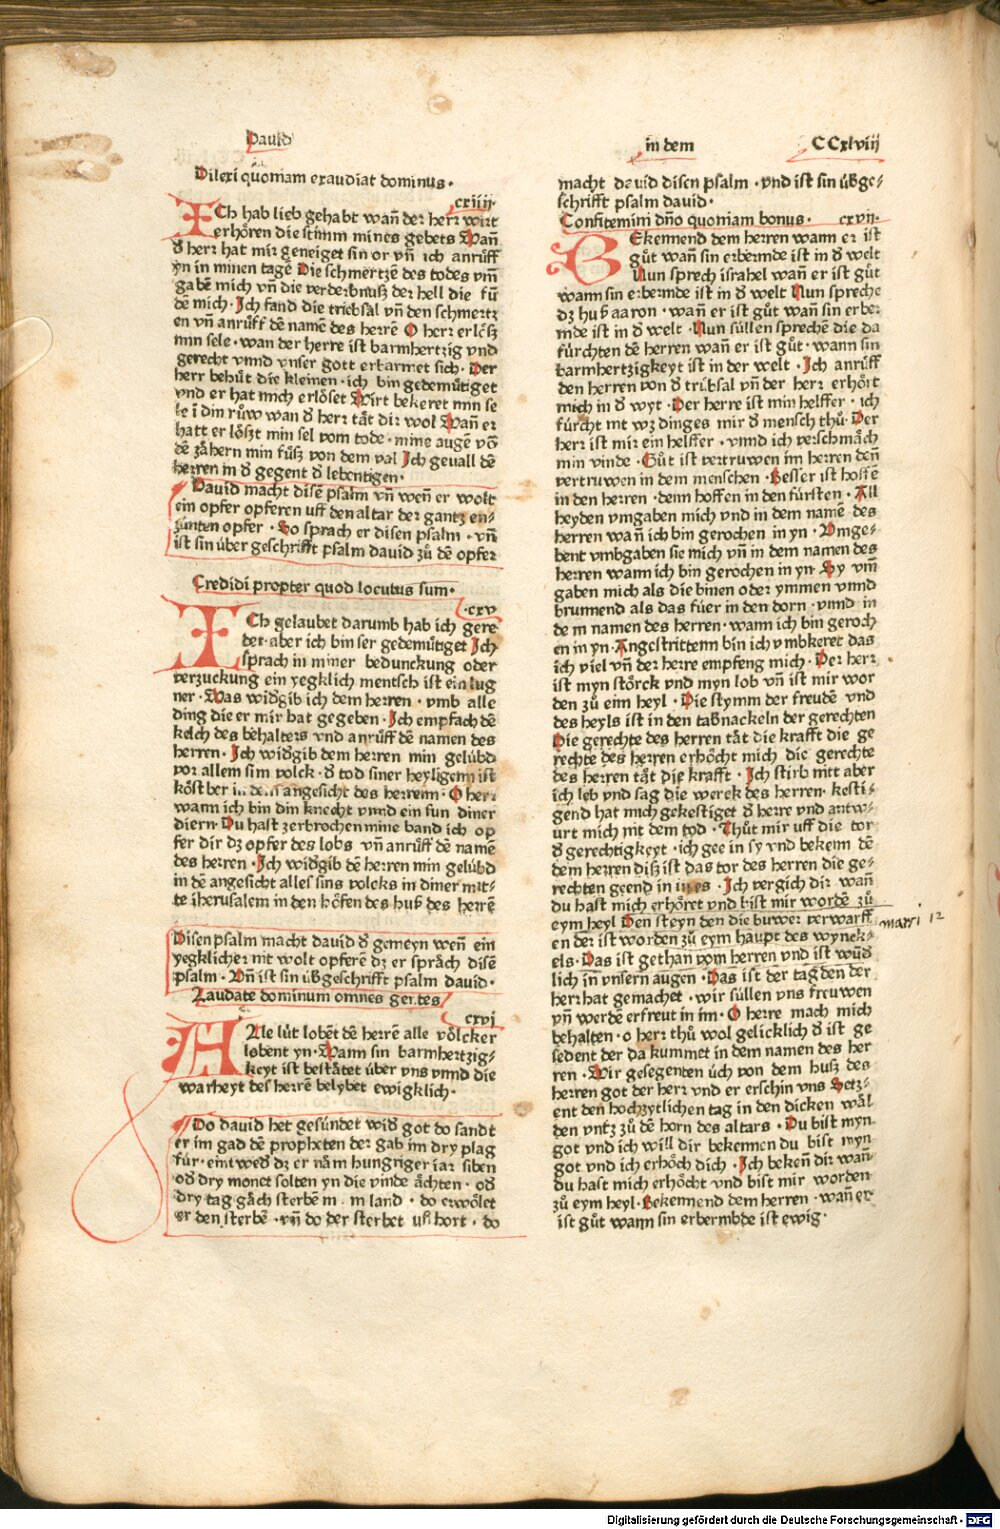 Dauid
in dem
CCxlviij
Dilexi quoniam exaudiat dominus·
cxiiij·
ICh hab lieb gehabt wañ der herr wirt
erhören die stimm mines gebets Wañ
d̕ herr hat mir geneiget sin or vñ ich anrüff
yn in minen tagē Die schmertzē des todes vm̄
gabē mich vñ die verderbnuß der hell die fū
dē mich· Jch fand die triebsal vñ den schmertz
en vñ anrüff dē namē des herrē O herr erlöß
min sele· wan der herre ist barmhertzig vnd
gerecht vnnd vnser gott erbarmet sich· Der
herr behüt die kleinen· ich bin gedemütiget
vnd er hat mich erlöset Wirt bekeret min se
le ī din rüw wan d̕ herr tät dir wol Wañ er
hatt er lößt min sel vom tode· mine augē vō
dē zähern min füß von dem val Jch geuall dē
herren in d̕ gegent d̕ lebentigen·
Dauid macht disē psalm vñ wen̄ er wolt
ein opfer opferen uff den altar der gantz en-
zünten opfer· So sprach er disen psalm· vñ
ist sin über geschrifft psalm dauid zů dē opfer
Credidi propter quod locutus sum·
·cxv
ICh gelaubet darumb hab ich gere
det·aber ich bin ser gedemütiget Jch
sprach in miner bedunckung oder
verzuckung ein yegklich mentsch ist ein lug
ner· Was wid̕gib ich dem herren· vmb alle
ding die er mir hat gegeben· Jch empfach dē
kelch des behalters vnd anrüff dē namen des
herren· Jch wid̕gib dem herren min gelübd
vor allem sim volck· d̕ tod siner heyligenn ist
köst ber in angesicht des herrenn· O herr
wann ich bin din knecht vnnd ein sun diner
diern· Du hast zerbrochen mine band ich op
fer dir dz opfer des lobs vñ anrüff dē namē
des herren· Jch wid̕gib dē herren min gelübd
in dē angesicht alles sins volcks in diner mit-
te iherusalem in den höfen des huß des herrē
Disen psalm macht dauid d̕ gemeyn wen̄ ein
yegklicher nit wolt opferē dz er spräch disē
psalm· Vñ ist sin üb̕geschrifft psalm dauid·
Laudate dominum omnes gentes
cxvj
ALle lüt lobēt dē herrē alle völcker
lobent yn· Wann sin barmhertzig-
keyt ist bestätet über vns vnnd die
warheyt des herrē belybet ewigklich·
Do dauid het gesündet wid̕ got do sandt
er im gad dē propheten der gab im dry plag
für· eintwed̕ dz er näm hungriger iar siben
od̕ dry monet solten yn die vinde ächten· od̕
dry tag gäch sterbē land· do erwölet
er den sterbē· vñ do der sterbet uff hort· do
macht dauid disen psalm· vnd ist sin übge-
schrifft psalm dauid·
Confitemini dño quoniam bonus· cxvij·
BEkennend dem herren wann er ist
güt wañ sin erbermde ist in d̕ welt
Nun sprech israhel wañ er ist güt
wann sin erbermde ist in d̕ welt Nun spreche
dz huß aaron· wañ er ist gůt wañ sin erber
mde ist in d̕ welt· Nun süllen sprechē die da
fürchten dē herren wañ er ist gůt· wann sin
barmhertzigkeyt ist in der welt· Jch anrüff
den herren von d̕ trübsal vñ der herr erhört
mich in d̕ wyt· Der herre ist min helffer· ich
fürcht nit wz dinges mir d̕ mensch thů· Der
herr ist mir ein helffer· vnnd ich verschmäch
min vinde· Gůt ist vertruwen im herren den̄
vertruwen in dem menschen· Besser ist hoffē
in den herren· denn hoffen in den fürsten· All
heyden vmgaben mich vnd in dem namē des
herren wañ ich bin gerochen in yn· Vmge-
bent vmbgaben sie mich vñ in dem namen des
herren wann ich bin gerochen in yn· Sy vm̄
gaben mich als die binen oder ymmen vnnd
brunnend als das füer in den dorn· vnnd in
dem namen des herren· wann ich bin geroch
en in yn· Angestrittenn bin ich vmbkeret das
ich viel vñ der herre empfeng mich· Der herr
ist myn störck vnd myn lob vñ ist mir wor
den zů eim heyl· Die stymm der freudē vnd
des heyls ist in den tabnackeln der gerechten
Die gerechte des herren tät die krafft die ge
rechte des herren erhöcht mich die gerechte
des herren tät die krafft· Jch stirb nitt aber
ich leb vnd sag die werck des herren· kesti-
gend hat mich gekestiget d̕ herre vnd antw-
urt mich nit dem tod· Thůt mir uff die tor
d̕ gerechtigkeyt· ich gee in sy vnd bekenn dē
dem herren diß ist das tor des herren die ge-
rechten geend in in es· Jch vergich dir wañ
du hast mich erhöret vnd bist mir wordē zů
eym heyl Den steyn den die buwer verwarff
en der ist worden zů eym haupt des wynck-
els· Das ist gethan vom herren vnd ist wūd̕
lich in vnsern augen· Das ist der tag den der
herr hat gemachet· wir süllen vns freuwen
vñ werdē erfreut in im· O herre mach mich
behalten· o herr thů wol gelicklich d̕ ist ge
sedent der da kummet in dem namen des her
ren· Wir gesegenten üch von dem huß des
herren got der herr vnd er erschin vns Setz-
ent den hochzytlichen tag in den dicken wäl
den vntz zů dē horn des altars· Du bist myn
got vnd ich will dir bekennen du bist myn
got vnd ich erhöch dich· Jch bekeñ dir wañ
du hast mich erhöcht vnd bist mir worden
zů eym heyl· Bekennend dem herren· wañ er
ist gůt wann sin erbermbde ist ewig·
matti 12
Digitalisierung gefördert durch die Deutsche Forschungsgemeinschaft · DFG